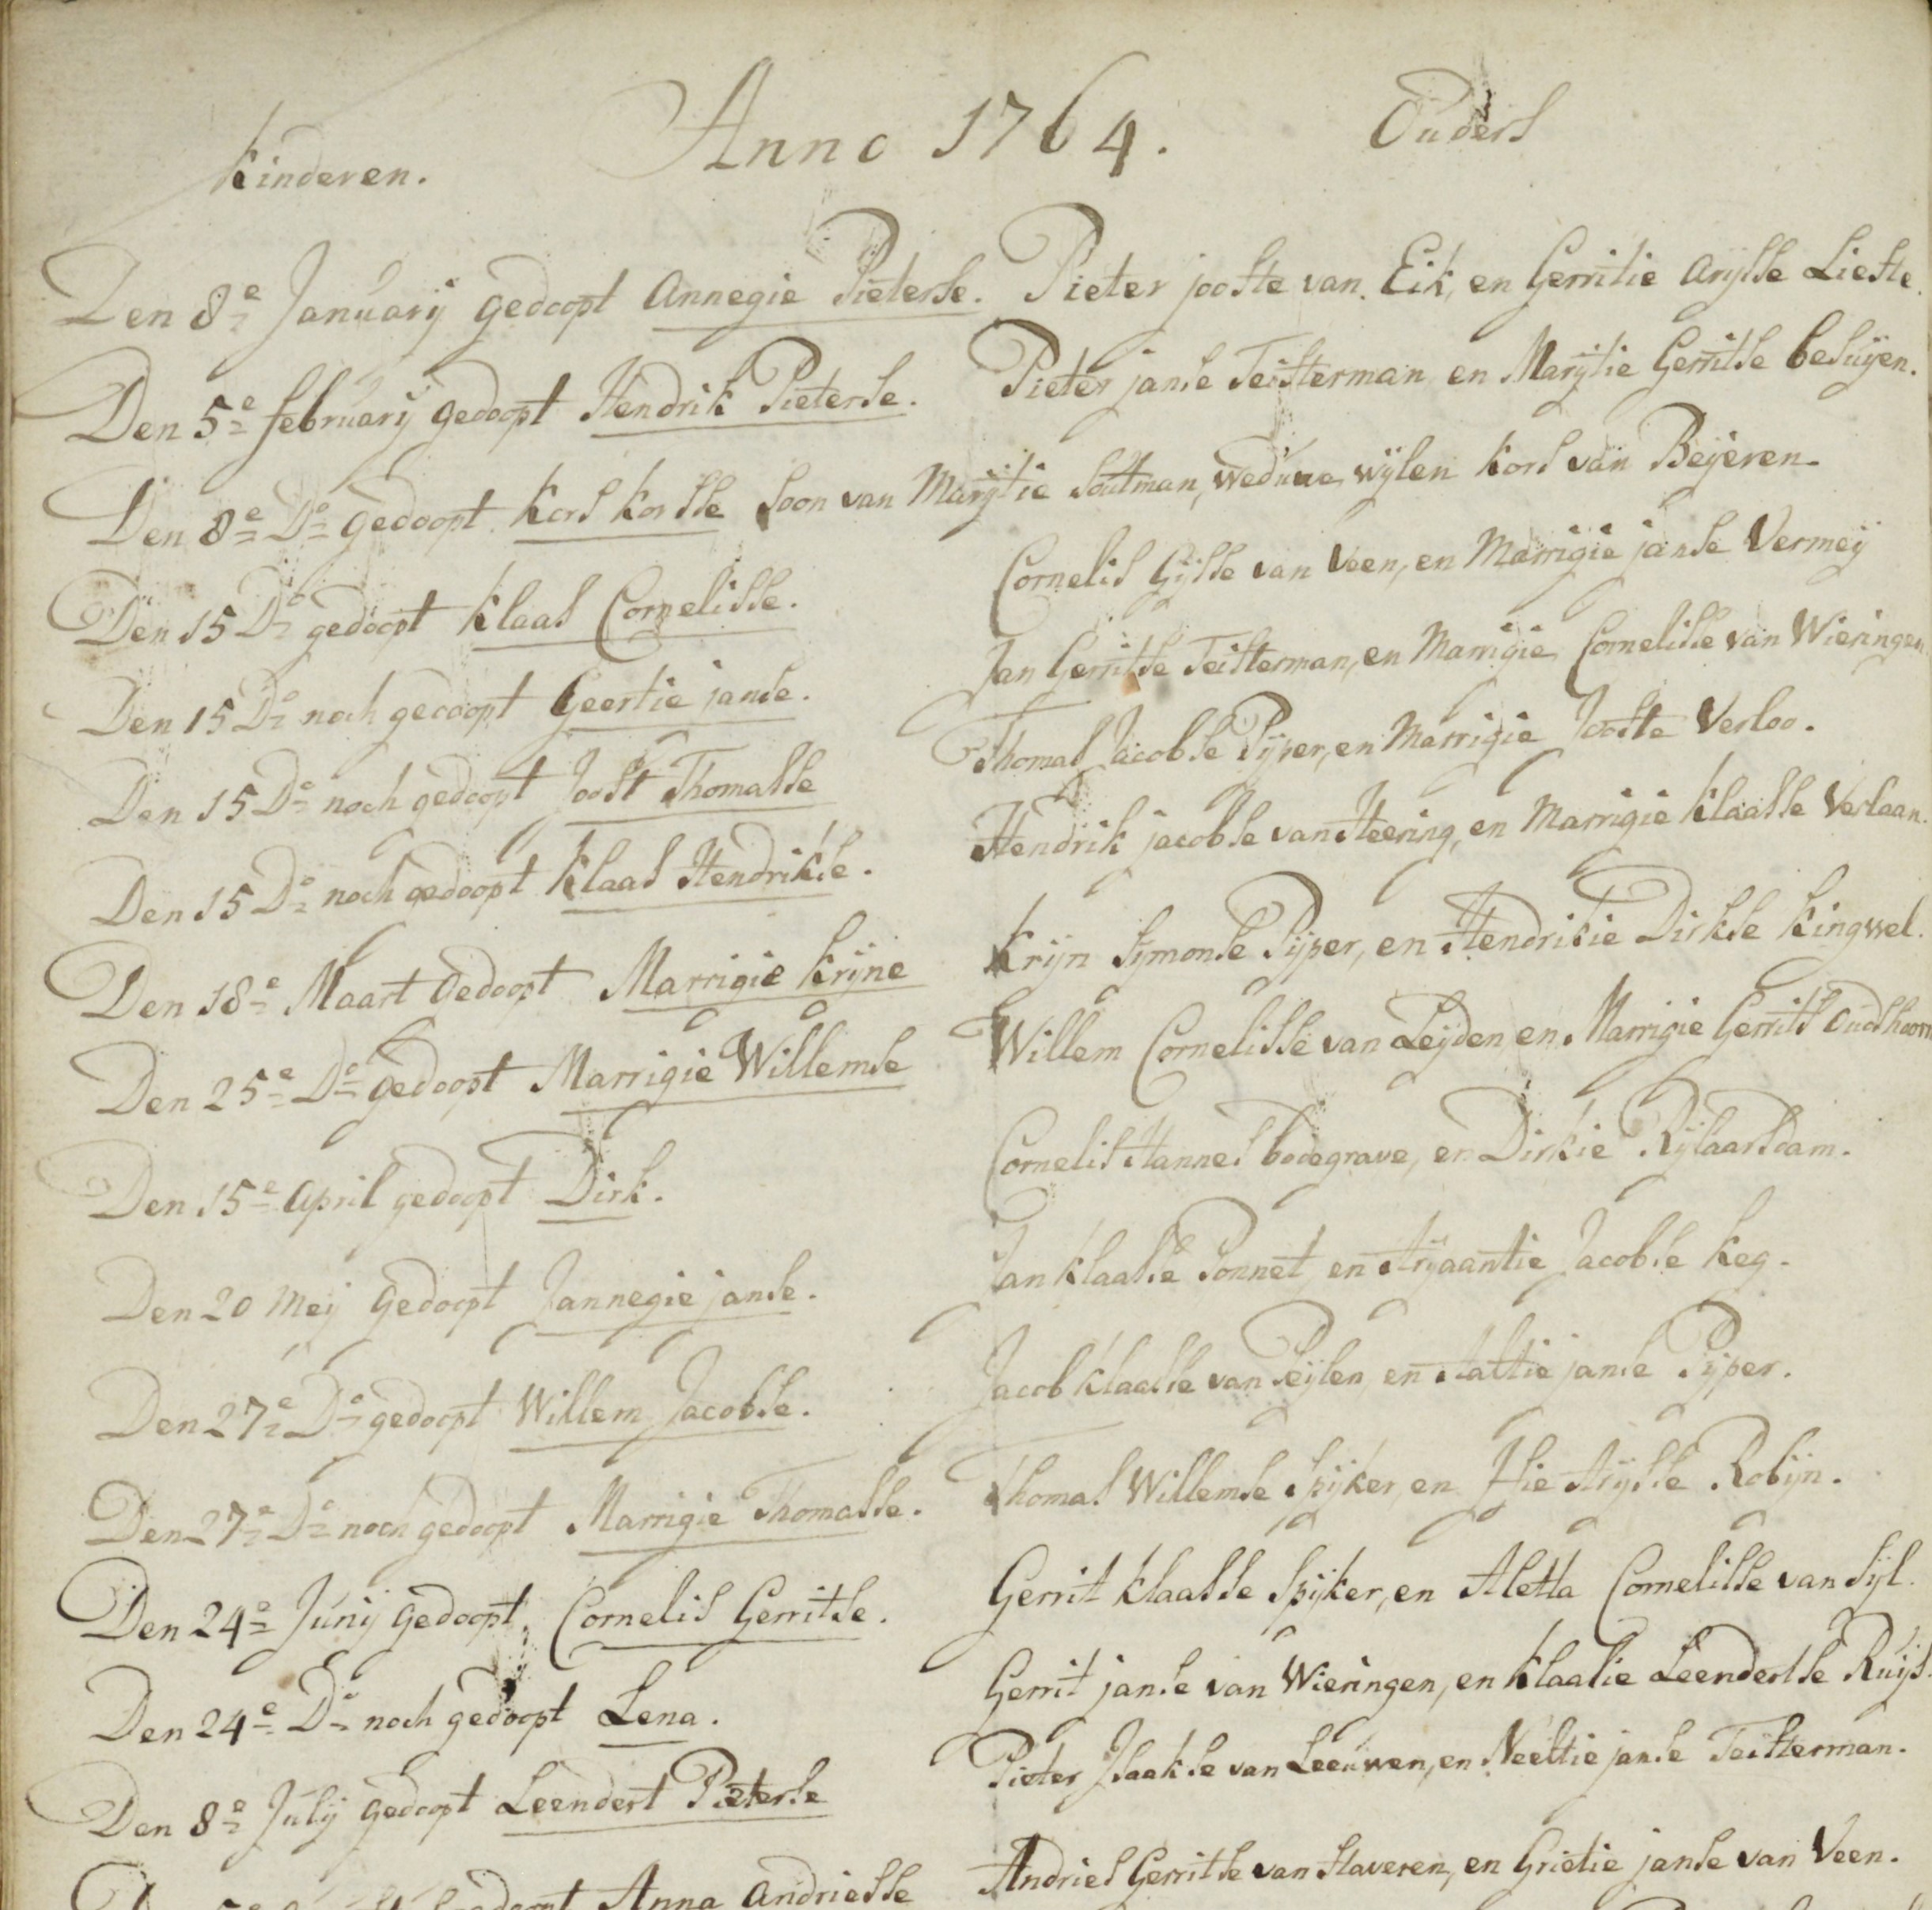 Kinderen. Anno 1764. Ouders
Den 8e January gedoopt Annegie Pieterse. Pieter jooste van Eik, en Gerritie Arysse Liefte.
Den 5e february gedoopt Hendrik Pieterse. Pieter janse Teisterman en Marijtie Gerritse besuijen.
Den 8e Do gedoopt Kors Korsse soon van Marijtie Soutman, weduwe wijlen Kors van Beijeren.
Den 15 Do gedoopt Klaas Cornelisse. Cornelis Gijsse van Veen, en Marrigie janse Vermeij
Den 15 Do noch gedoopt Geertie janse. Jan Gerritse Teisterman, en Marrigie Cornelisse van Wieringen
Den 15 Do noch gedoopt Joost Thomasse Thomas Jacobse Pijper, en Marrigie Jooste Verloo.
Den 15 Do noch gedoopt Klaas Hendrikse. Hendrik jacobse van Heering, en Marrigie Klaasse Verlaan.
Den 18e Maart Gedoopt Marrigie Krijne Krijn Sijmonse Pijper, en Hendrikie Dirkse Kingwel.
Den 25e Do gedoopt Marrigie Willemse Willem Cornelisse van Leijden en Marrigie Gerrits Oudshoorn
Den 15e April gedoopt Dirk. Cornelis Hannes bodegrave, en Dirkie Rijlaarsdam.
Den 20 Meij Gedoopt Jannegie janse. Jan Klaasse Sonnet en Arijaantie Jacobse Keg.
Den 27e Do gedoopt Willem Jacobse. Jacob Klaasse van Seijlen en Aaltie janse Pijper.
Den 27e Do noch gedoopt Marrigie Thomasse. Thomas Willemse Spijker, en Jsie Arijsse Robijn.
Den 24e Junij Gedoopt, Cornelis Gerritse. Gerrit Klaasse Spijker, en Aletta Cornelisse van Sijl.
Den 24e Do noch gedoopt Lena. Gerrit janse van Wieringen, en Klaasie Leendertse Ruijs.
Den 8e Julij Gedoopt Leendert Pieterse Pieter Jsaakse van Leeuwen, en Neeltie janse Teisterman.
gedoopt Anna Andriesse Andries Gerritse van Staveren, en Grietie janse van Veen.